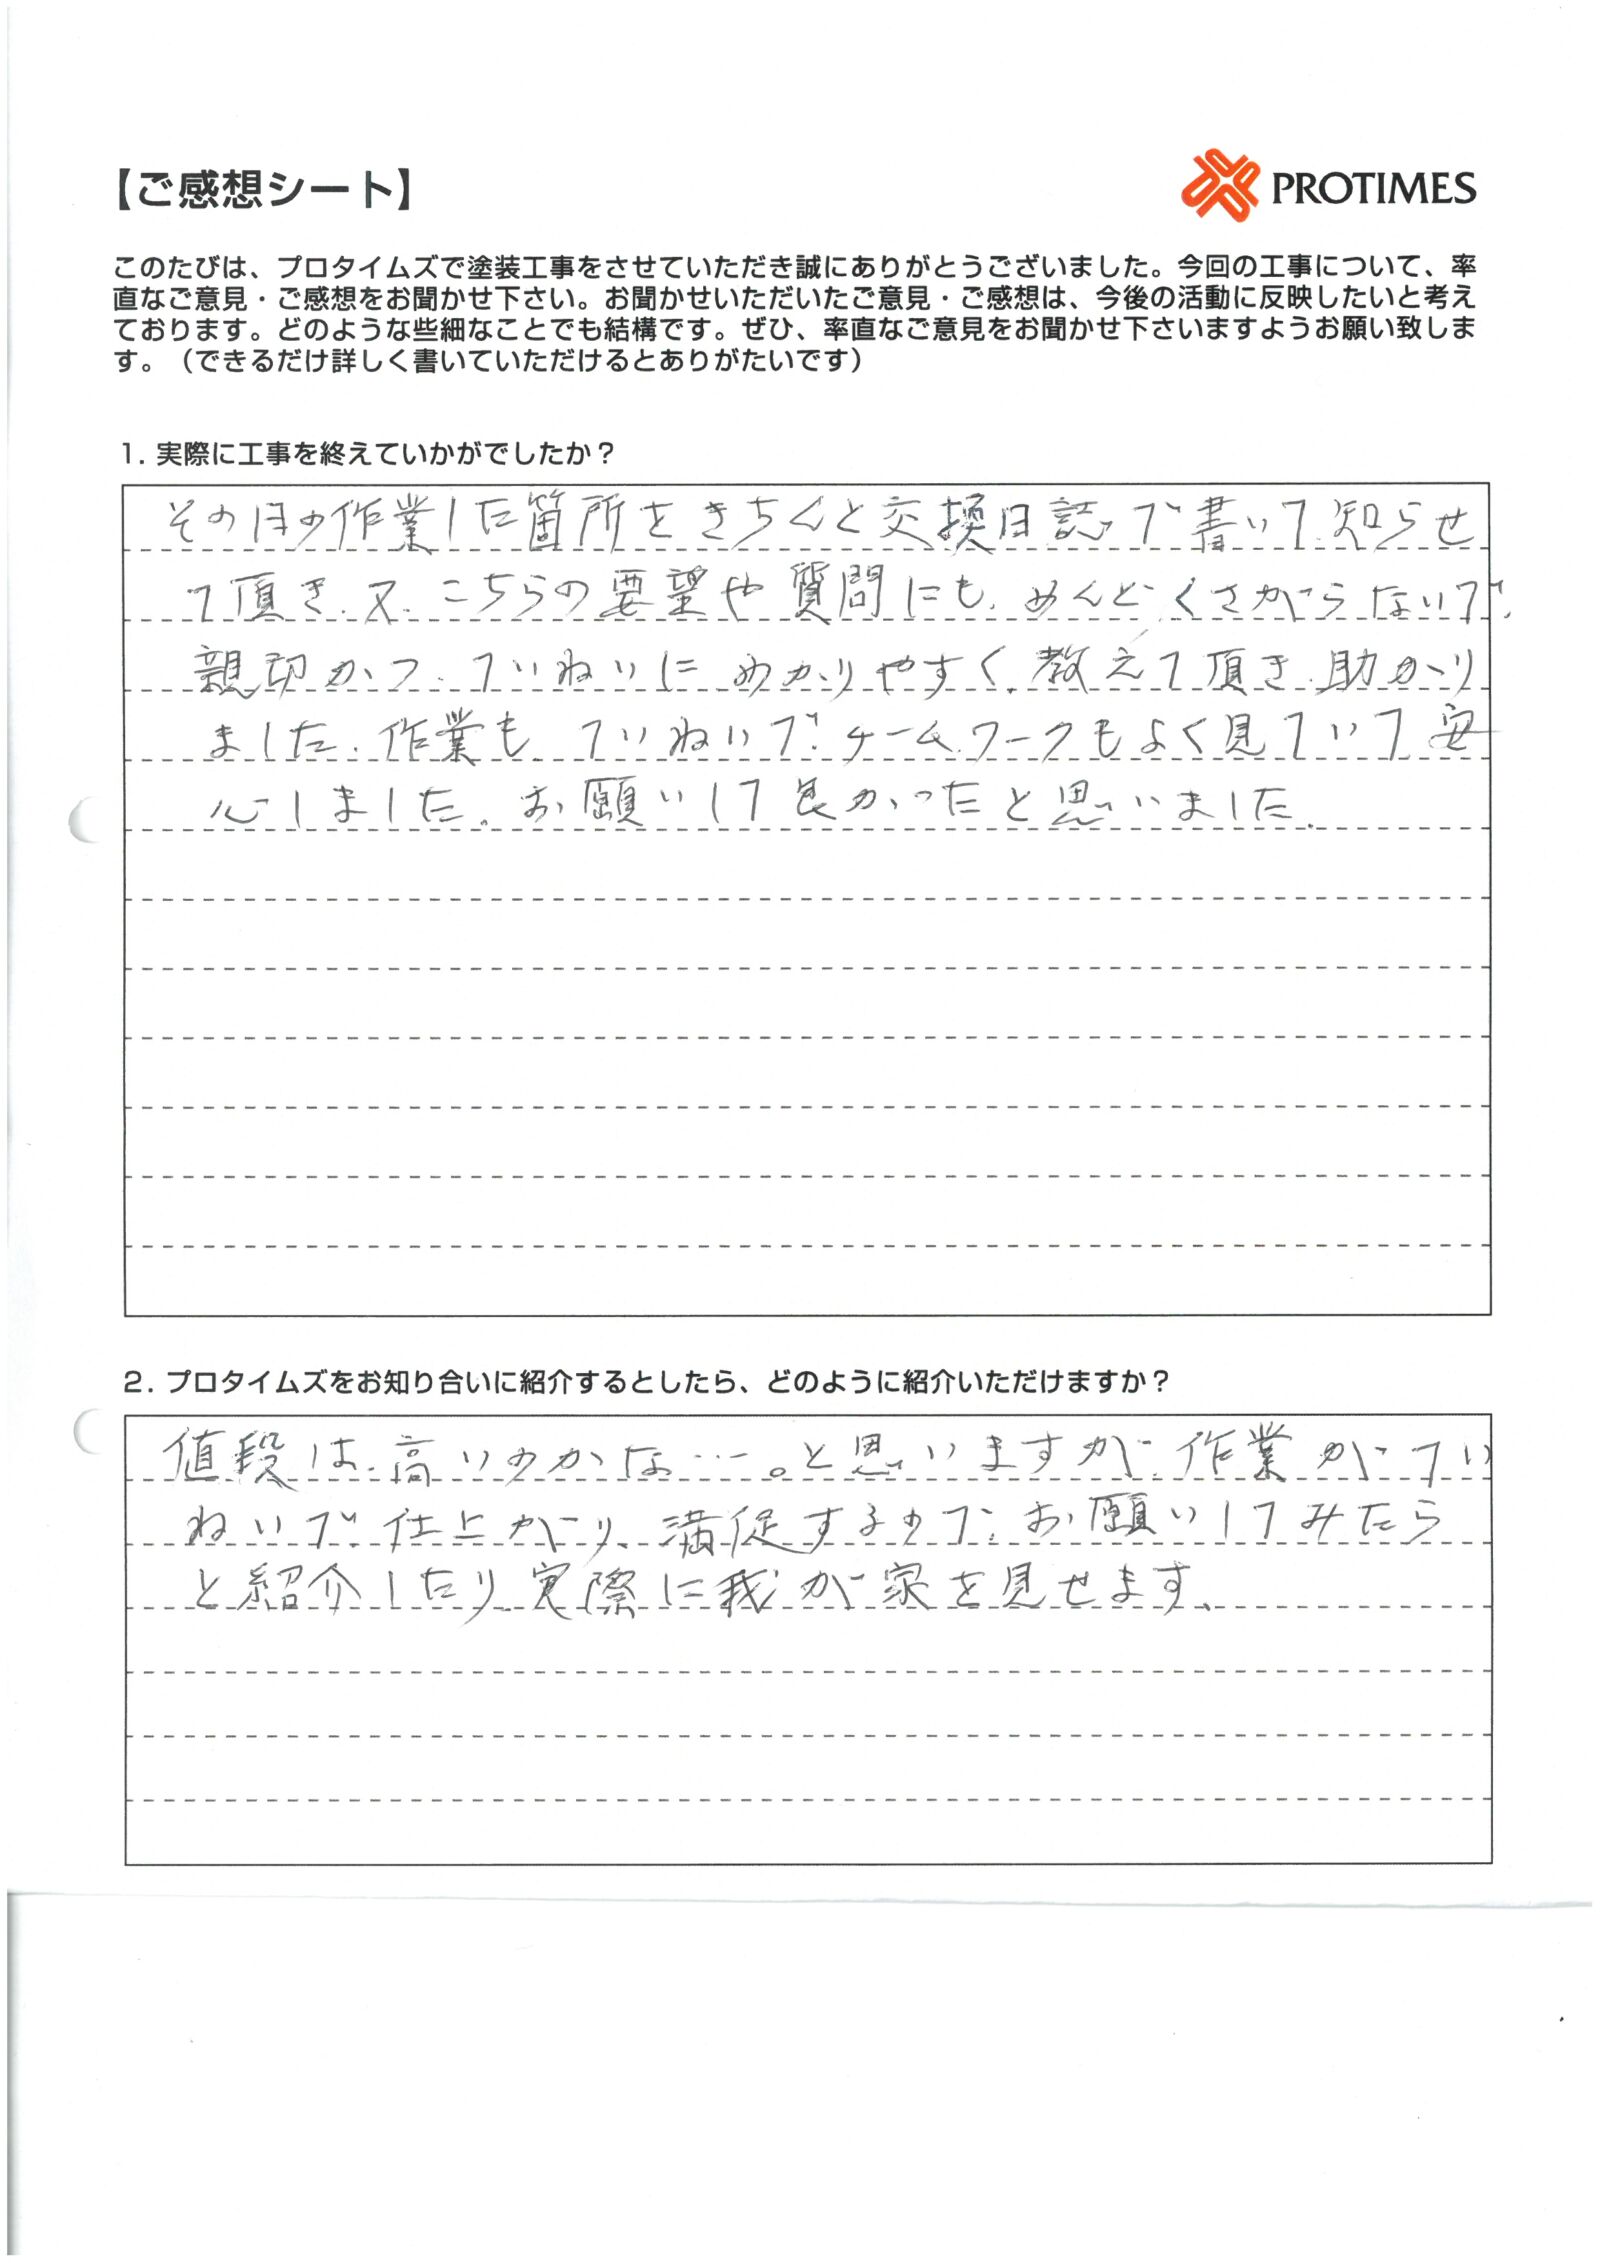 【ご感想シート】
PROTIMES
このたびは、プロタイムズで塗装工事をさせていただき誠にありがとうございました。今回の工事について、率
直なご意見・ご感想をお聞かせ下さい。お聞かせいただいたご意見・ご感想は、今後の活動に反映したいと考え
ております。どのような些細なことでも結構です。ぜひ、率直なご意見をお聞かせ下さいますようお願い致しま
す。（できるだけ詳しく書いていただけるとありがたいです）
1. 実際に工事を終えていかがでしたか？
その日の作業した箇所をきちんと交換日誌で書いて、知らせ
て頂き、又、こちらの要望や質問にも、めんどくさがらないで、
親切かつ、ていねいにわかりやすく、教えて頂き、助かり
ました、作業も、ていねいで、チームワークもよく見ていて、安
心しました。お願いして良かったと思いました。
2. プロタイムズをお知り合いに紹介するとしたら、どのように紹介いただけますか？
値段は、高いのかな…。と思いますが、作業がてい
ねいで、仕上がり、満足するので、お願いしてみたら
と紹介したり、実際に我が家を見せます、